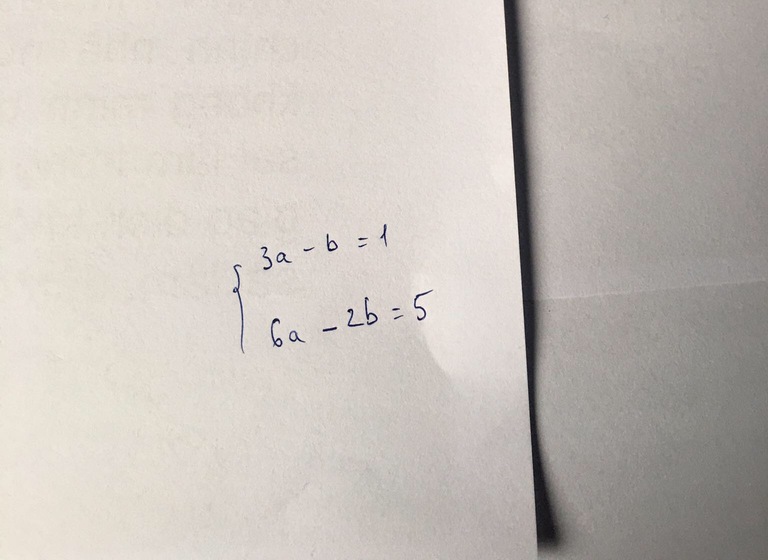 3a - b = 1
6a - 2b = 5